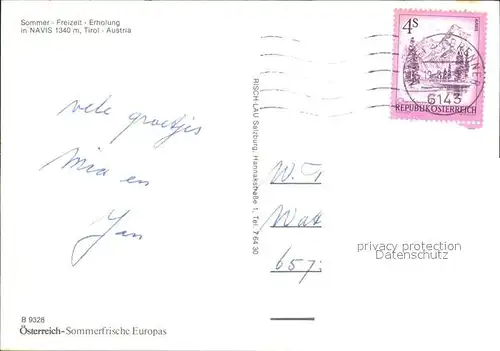 Sommer - Freizeit - Erholung
in NAVIS 1340 m, Tirol - Austria
vele groetjes
Mia en
Jan
B 9326
Österreich-Sommerfrische Europas
RISCH-LAU Salzburg, Hannakstraße 1, Tel. 7 64 30
4S
BRENNER
6143
REPUBLIK ÖSTERREICH
W. T
Wat
657
privacy protection
ansichtskarten-center.de